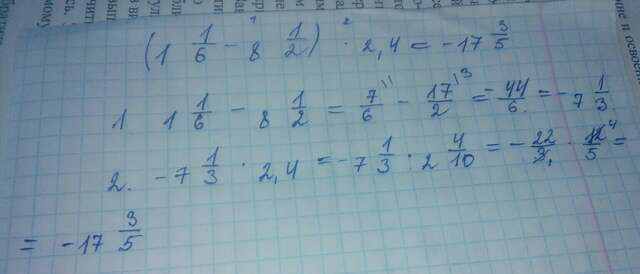 (1 1/6 - 8 1/2) · 2,4 = -17 3/5
1. 1 1/6 - 8 1/2 = 7/6 - 17/2 = -44/6 = -7 1/3.
2. -7 1/3 · 2,4 = -7 1/3 : 2 4/10 = -22/3 · 12/5 =
= -17 3/5